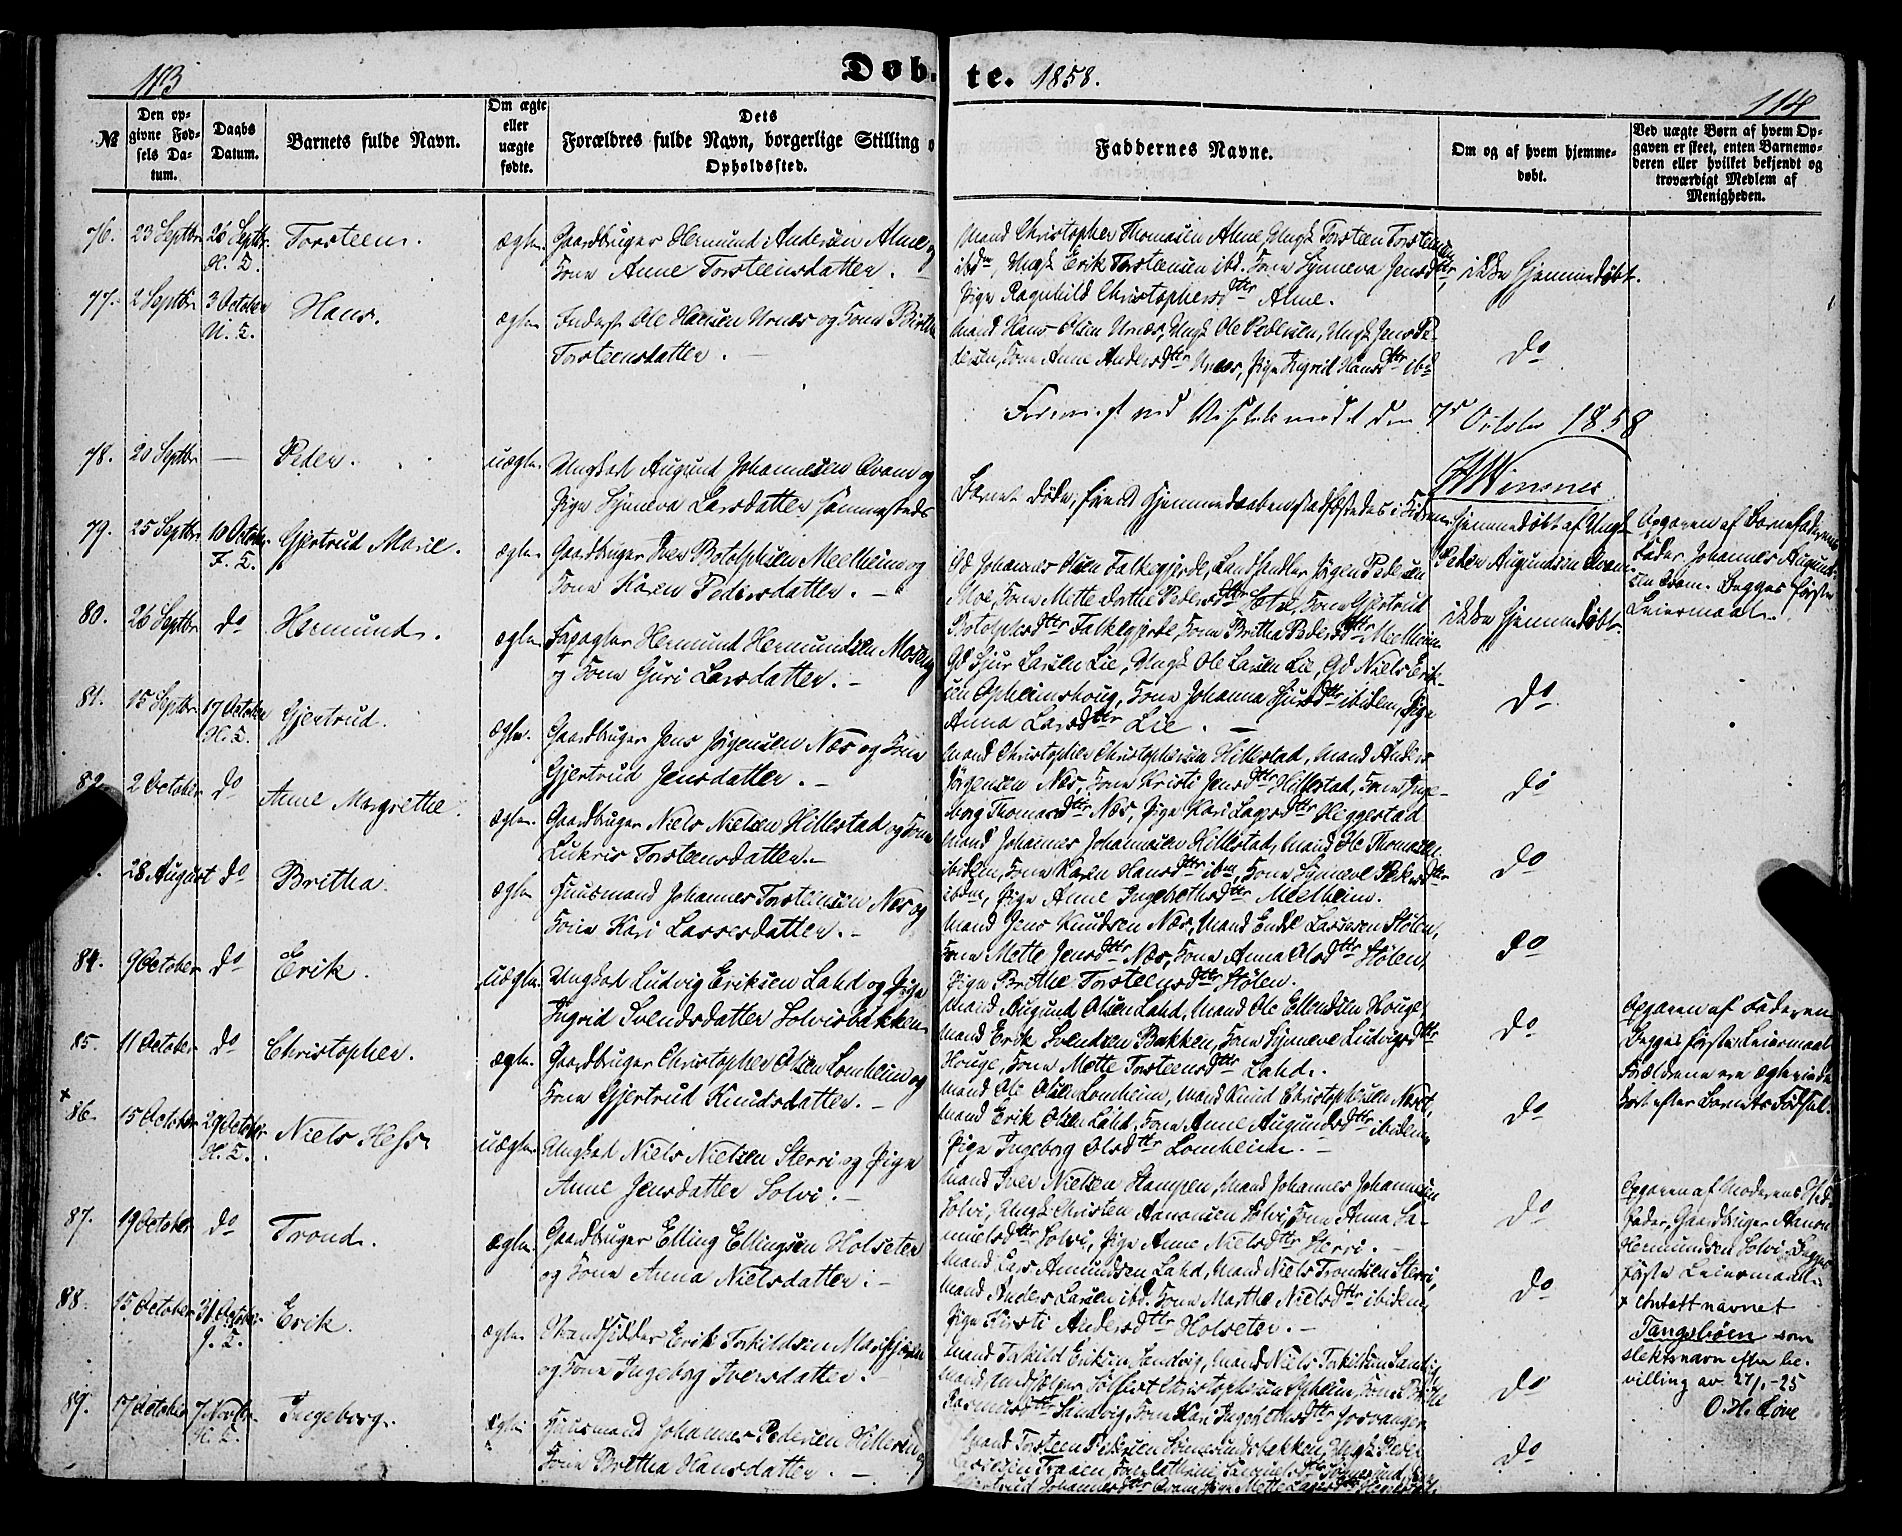 113
Døb-te. 1858.
114
№
Den opgivne Fødsels Datum.
Daabs Datum.
Barnets fulde Navn.
Om ægte eller uægte fødte.
Dets Forældres fulde Navn, borgerlige Stilling o
Opholdssted.
Faddernes Navne.
Om og af hvem hjemmedøbt.
Ved uægte Børn af hvem Opgaven er skeet, enten Barnemoderen eller hvilket bekjendt og troværdigt Medlem af Menigheden.
76. 23 Septbr 26 Septbr. H. K. Torsteen. ægte. Gaardbruger Hermund Andersen Alme og
Kone Anne Torsteensdatter. –
Mand Christopher Thomasen Alme, Ungk Torsteen Torsteensen
ibdm, Ungk Erik Torsteensen ibd. Kone Synneva Jensdttr,
Pige Ragnhild Christophersdttr Alme.
ikke hjemmedøbt.
77. 2 Septbr 3 October U. K. Hans. ægte. Inderst Ole Hansen Urnes og Kone Birthe
Torsteensdatter. –
Mand Hans Olsen Urnæs, Ungk Ole Pedersen, Ungk Jens Pe-
dersen, Kone Anne Andersdttr Urnæs, Pige Sigrid Hansdttr ibd
do
October 1858
78. 20 Septbr – Peder. uægte. Ungkarl Augund Johannesen Kvam og
Pige Synneva Larsdatter sammesteds
Barnet døde, førend Hjemmedaaben stadfæstedes i Kirken
hjemmedøbt af Ungk
Peder Augundsen Kvam
Opgaven af Barnefaderens
Fader Johannes Augund-
sen Kvam. Begges første
Leiermaal.
79. 25 Septbr 10 October F. K. Gjertrud Marie. ægte. Gaardbruger Iver Botolphsen Meelheim og
Kone Karen Pedersdatter. –
Gd Johannes Olsen Falkegjerde, Landhandler Jørgen Pedersen
Moe, Kone Mette Dorthe Pedersdttr, Kone Gjertrud
Botolphsdttr Falkegjerde, Kone Britha Pedersdttr Meelheim
ikke hjemmedøbt.
80. 26 Septbr do Hermund. ægte. Hermund Hermundsen Moseng
og Kone Guri Larsdatter. –
Gd Sjur Larsen Lie, Ungk Ole Larsen Lie, Gd Niels Erik-
sen Opheimshoug, Kone Johanna Sjursdttr ibidem, Pige
Anna Larsdttr Lie. –
do
81. 15 Septbr 17 October H. K. Gjertrud. ægte. Gaardbruger Jens Jørgensen Næs og Kone
Gjertrud Jensdatter. –
Mand Christopher Christophersen Hillestad, Mand Anders
Jørgensen Næs, Kone Kristi Jensdttr Hillestad, Kone Inge-
borg Thomasdttr Næs, Pige Kari Larsdttr Heggestad
do
82. 2 October do Anne Margrethe. ægte. Gaardbruger Niels Nielsen Hillestad og Kone
Lukris Torsteensdatter. –
Mand Johannes Johannesen Hillestad, Mand Ole Thomasen
ibidem, Kone Karen Hansdttr ibm, Kone Synneve Pedersdttr
ibdm, Pige Anne Ingebrethsdttr Meelheim.
do
28 August do Britha. ægte Huusmand Johannes Torsteensen Næs og
Kone Kari Lassesdatter. –
Mand Jens Knudsen Næs, Mand Endre Lassesen Stølen,
Kone Mette Jensdttr Næs, Kone Anna Olsdttr Stølen,
Pige Brithe Torsteensdttr Stølen.
do
84. 9 October do Erik. uægte. Ungkarl Ludvig Eriksen Lahd og Pige
Ingrid Svendsdatter Solvisbakken
Mand Augund Olsen Lahd, Mand Ole Ellendsen Houge,
Mand Erik Svendsen Bakken, Kone Synneve Ludvigsdttr
Houge, Kone Mette Torsteensdttr Lahd.
do
Opgaven af Faderen
Begges første Leiermaal
Forældrene ere ægteviede
kort efter Barnets Fødsel.
85. 11 October do Christopher. ægte. Gaardbruger Christopher Olsen Lomheim og
Kone Gjertrud Knudsdatter. –
Mand Ole Olsen Lomheim, Mand Knud Christophersen
Mand Erik Olsen Lahd, Kone Anne Augundsdttr ibidem
Pige Ingeborg Olsdttr Lomheim. –
do
x
86. 15 October 24 October H. K. Niels Hess uægte. Ungkarl Niels Nielsen Sterri og Pige
Anne Jensdatter Solvi. –
Mand Iver Nielsen Stampen, Mand Johannes Johannesen
Solvi, Ungk Christen Aanonsen Solvi, Kone Anna Sa-
muelsdttr Solvi, Pige Anne Nielsdttr Sterri. –
do
Opgaven af Moderens Sted-
fader, Gaardbruger Aanon
Hermundsen Solvi. Begges
første Leiermaal.
x Antatt navnet
Tangsbøen som
slektsnavn efter be-
villing av 27/1.-25
O. H. Løve
87. 19 October do Trond. ægte. Gaardbruger Elling Ellingsen Holseter
og Kone Anna Nielsdatter. –
Mand Lars Amundsen Lahd, Mand Niels Trondsen Sterri,
Mand Anders Larsen ibd. Kone Marthe Nielsdttr ibidem,
Pige Kirsti Andersdttr Holseter. –
do
88. 15 October 31 October J. K. Erik. ægte. Strandsidder Erik Torkildsen Marifjæren
og Kone Ingeborg Iversdatter. –
Mand Torkild Eriksen Sandvig, Mand Niels Torkildsen Sandvig
Christophersen Opheim, Kone Brithe
Rasmusdttr Sandvig, Kone Kari
do
89. 17 October 7 Novbr. H. K. Ingeborg. ægte Huusmand Johannes Pedersen Hilleren og
Kone Britha Hansdatter. –
Mand Torsteen Pedersen Ungk Peder
do